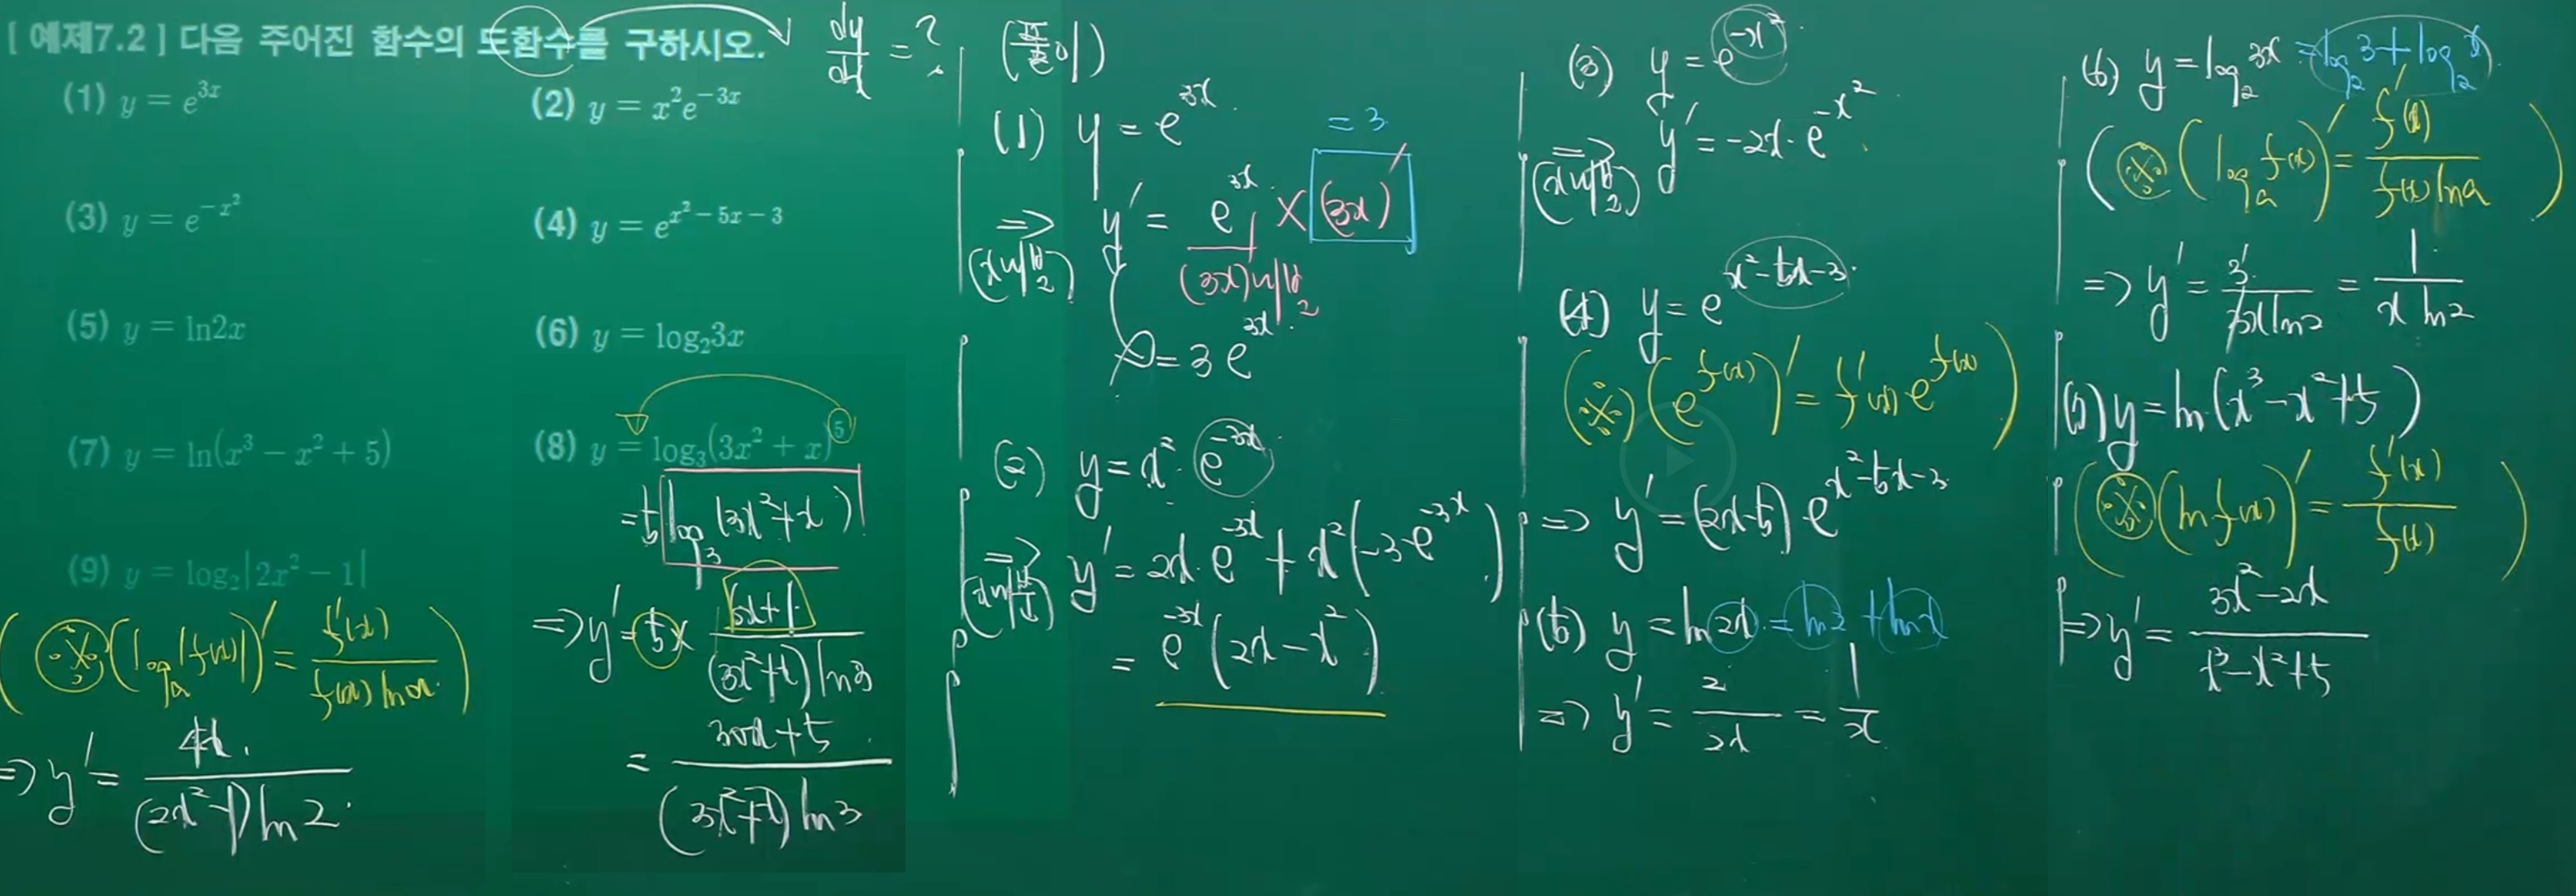 [ 예제7.2 ] 다음 주어진 함수의 도함수를 구하시오. dy/dx = ?
(1) y = e^{3x}
(2) y = x²e^{-3x}
(3) y = e^{-x²}
(4) y = e^{x² - 5x - 3}
(5) y = ln2x
(6) y = log₂3x
(7) y = ln(x³ - x² + 5)
(8) y = log₃(3x² + x)⁵
= 5 log₃(3x² + x)
⇒ y' = 5 × (6x+1)/((3x²+x) ln3)
= (30x+5)/((3x²+x) ln3)
(9) y = log₂|2x² - 1|
(※ (logₐ|f(x)|)' = f'(x)/(f(x) ln a))
⇒ y' = 4x/((2x²-1) ln2)
(풀이)
(1) y = e^{3x}
= 3
⇒ y' = e^{3x} × (3x)'
(x에 대한 미분)
(3x)
= 3e^{3x}
(2) y = x²·e^{-3x}
⇒ y' = 2x·e^{-3x} + x²(-3·e^{-3x})
= e^{-3x}(2x - x²)
(3) y = e^{-x²}
⇒ y' = -2x·e^{-x²}
(4) y = e^{x²-5x-3}
(※) (e^{f(x)})' = f'(x)·e^{f(x)}
⇒ y' = (2x-5)·e^{x²-5x-3}
(5) y = ln2x = ln2 + lnx
⇒ y' = 2/2x = 1/x
(6) y = log₂3x = log₂3 + log₂x
(※ (logₐf(x))' = f'(x)/(f(x) ln a))
⇒ y' = 3/(3x ln2) = 1/(x ln2)
(7) y = ln(x³ - x² + 5)
(※ (ln f(x))' = f'(x)/f(x))
⇒ y' = (3x²-2x)/(x³-x²+5)